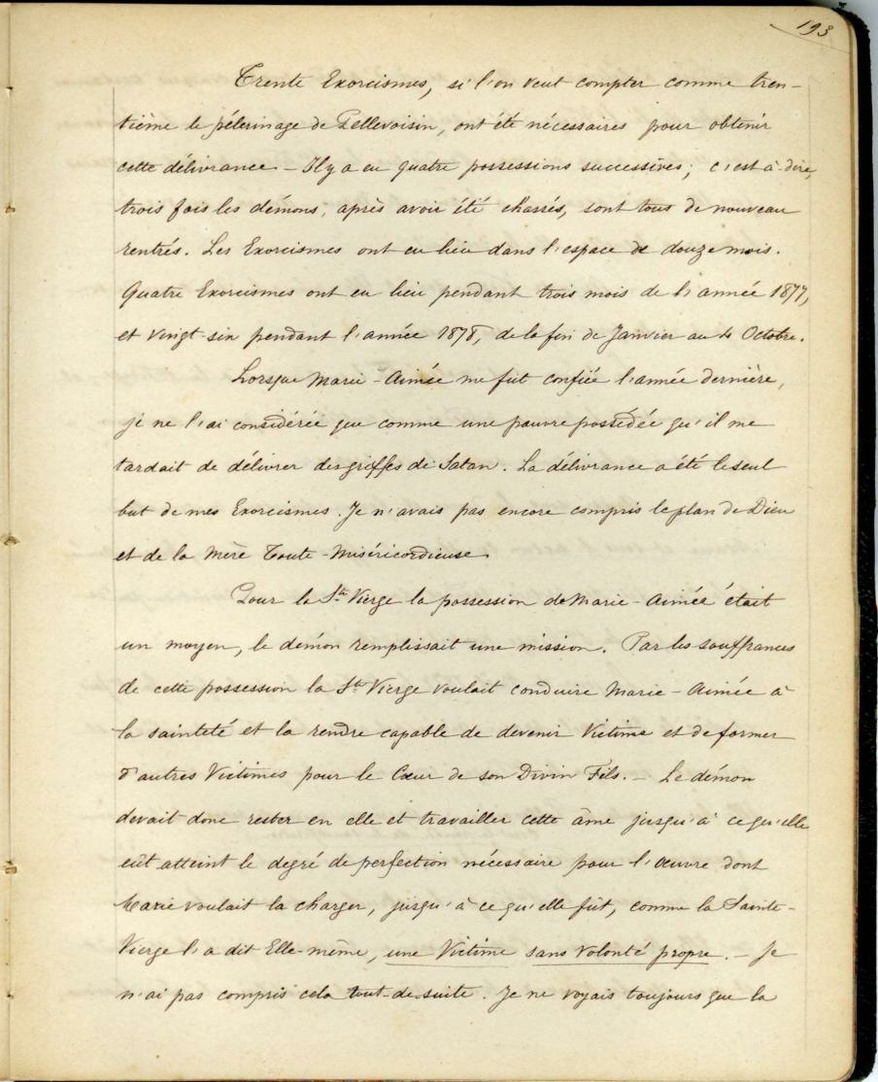 193
Trente Exorcismes, si l'on veut compter comme tren-
tième le pélerinage de Pellevoisin, ont été nécessaires pour obtenir
cette délivrance. - Il y a eu quatre possessions successives; c'est à-dire,
trois fois les démons, après avoir été chassés, sont tous de nouveau
rentrés. Les Exorcismes ont eu lieu dans l'espace de douze mois.
Quatre Exorcismes ont eu lieu pendant trois mois de l'année 1877,
et vingt-six pendant l'année 1878, de la fin de Janvier au 4 Octobre.
Lorsque Marie-Aimée me fut confiée l'année dernière,
je ne l'ai considérée que comme une pauvre possédée qu'il me
tardait de délivrer des griffes de Satan. La délivrance a été le seul
but de mes Exorcismes. Je n'avais pas encore compris le plan de Dieu
et de la Mère Toute-Miséricordieuse.
Pour la Ste Vierge la possession de Marie-Aimée était
un moyen, le démon remplissait une mission. Par les souffrances
de cette possession la Ste Vierge voulait conduire Marie-Aimée à
la sainteté et la rendre capable de devenir Victime et de former
d'autres Victimes pour le Cœur de son Divin Fils. - Le démon
devait donc rester en elle et travailler cette âme jusqu'à ce qu'elle
eût atteint le degré de perfection nécessaire pour l'œuvre dont
Marie voulait la charger, jusqu'à ce qu'elle fût, comme la Sainte-
Vierge l'a dit Elle-même, une Victime sans volonté propre. - Je
n'ai pas compris cela tout-de-suite. Je ne voyais toujours que la